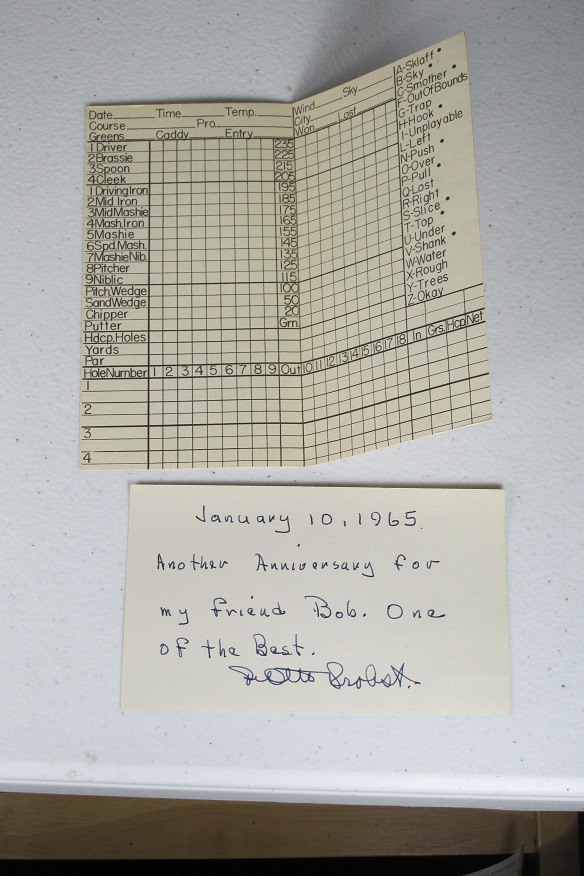 Date Time Temp.
Course Pro
Greens Caddy Entry
1 Driver 235
2 Brassie 225
3 Spoon 215
4 Cleek 205
1 Driving Iron 195
2 Mid Iron 185
3 Mid Mashie 175
4 Mash.Iron 165
5 Mashie 155
6 Spd.Mash. 145
7 Mashie Nib. 135
8 Pitcher 125
9 Niblic 115
Pitch.Wedge 100
Sand Wedge 50
Chipper 20
Putter Grn.
Hdcp.Holes
Yards
Par
Hole Number 1 2 3 4 5 6 7 8 9 Out 10 11 12 13 14 15 16 17 18 In Grs. Hcp Net
1
2
3
4
Wind Sky
City
Won Lost
A-Sklaff •
B-Sky •
C-Smother •
F-Out Of Bounds
G-Trap
H-Hook •
I-Unplayable
L-Left
N-Push •
O-Over
P-Pull •
Q-Lost
R-Right
S-Slice •
T-Top •
U-Under
V-Shank •
W-Water
X-Rough
Y-Trees
Z-Okay
January 10, 1965.
Another Anniversary for
my friend Bob. One
of the Best.
Otto Probst.